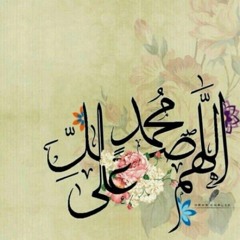 اللَّهُمَّ صَلِّ عَلَى مُحَمَّد